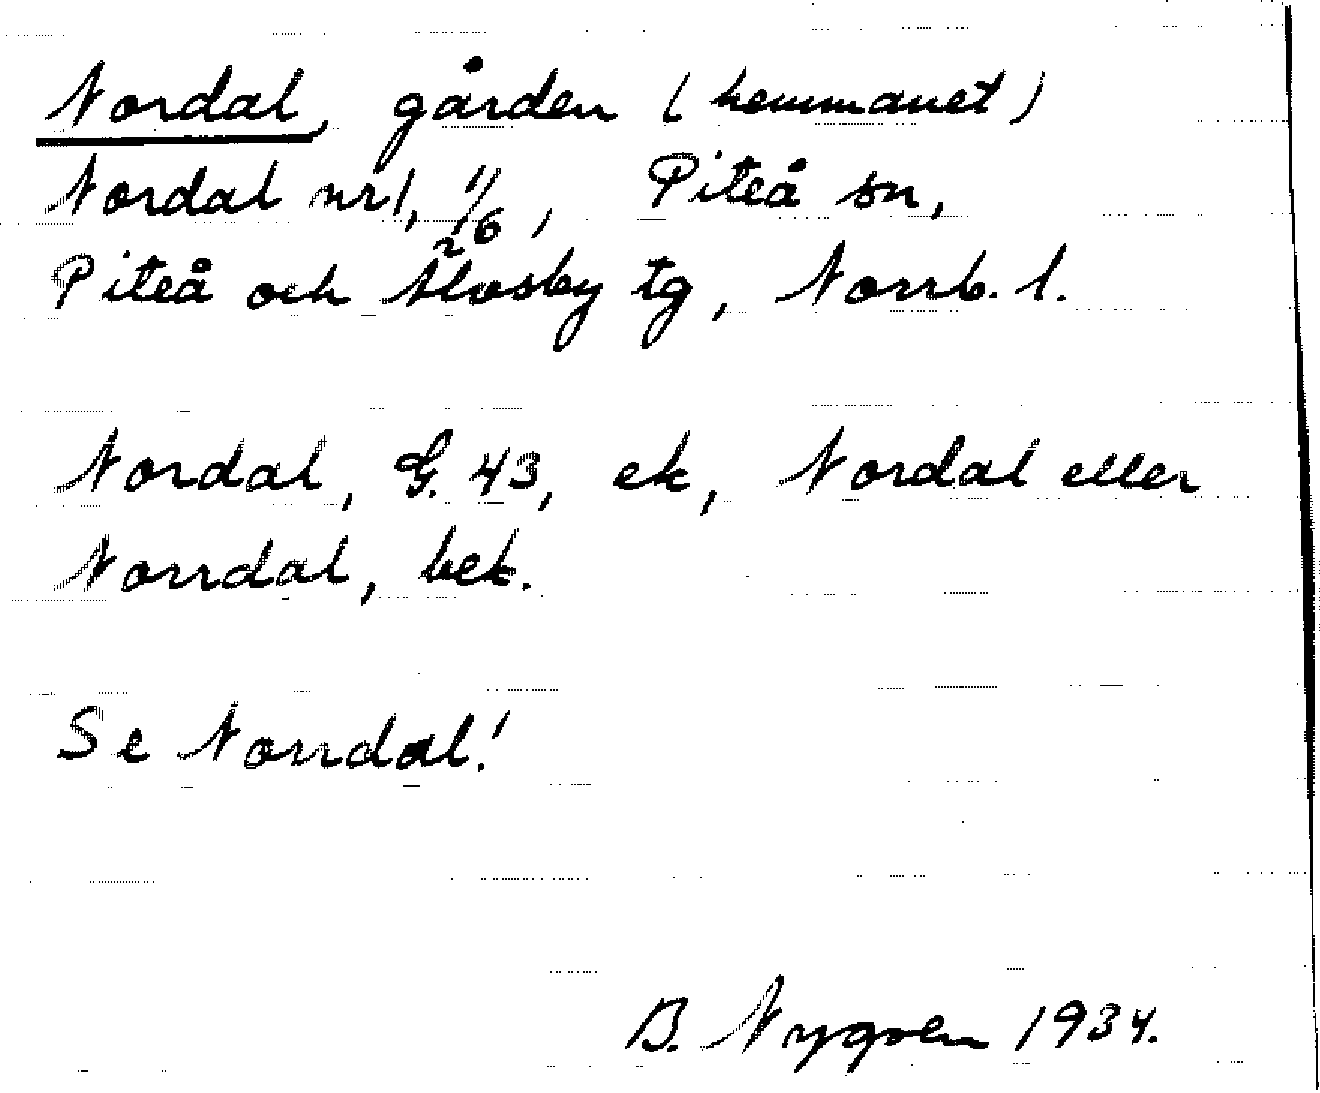 Nordal, gården (hemmanet)
Nordal nr 1, 11/26, Piteå sn,
Piteå och Älvsby tg, Norrb. l.
Nordal, G. 43, ek, Nordal eller
Norrdal, bet.
Se Norrdal!
B. Nygren 1934.